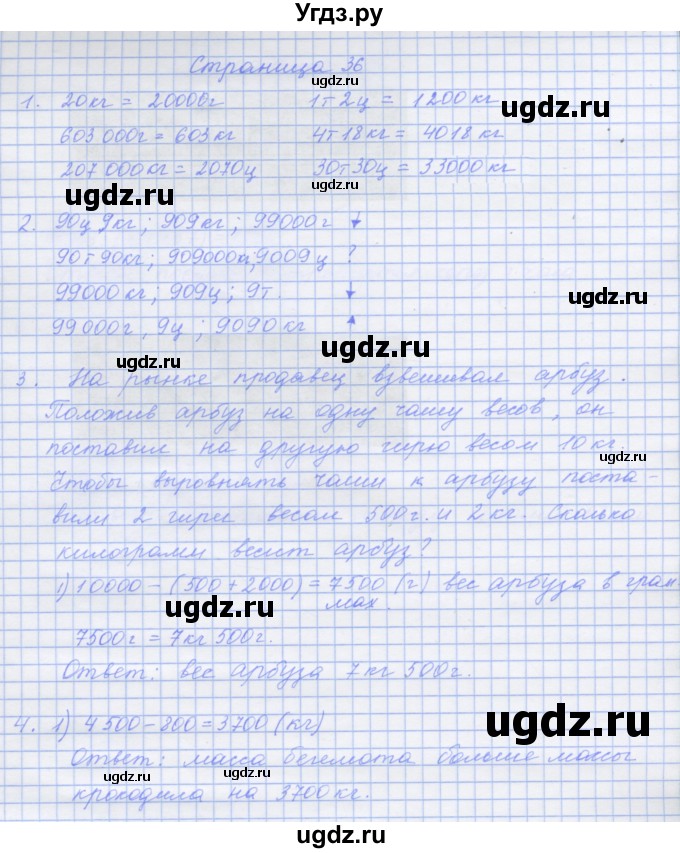 Угдз.ру
Страница 36
ugdz.ru
1. 20кг = 20000г 1т2ц = 1200 кг
ugdz.ru
603 000г = 603 кг 4т18кг = 4018 кг
ugdz.ru
207 000кг = 2070ц 30т30ц = 33000 кг
ugdz.ru ugdz.ru
2. 90ц 9кг; 909кг; 99000г ↓
90т 90кг; 909000кг; 9009ц ?
ugdz.ru
99000кг; 909ц; 9т. ↓
ugdz.ru
99000г, 9ц; 9090 кг ↑
ugdz.ru
ugdz.ru
3. На рынке продавец взвешивал арбуз.
Положив арбуз на одну чашу весов, он
поставил на другую гирю весом 10 кг.
ugdz.ru
Чтобы выровнять чаши к арбузу поста-
вили 2 гири весом 500г. и 2 кг. Сколько
ugdz.ru
килограмм весит арбуз?
1) 10000 - (500 + 2000) = 7500 (г) вес арбуза в грам
мах.
ugdz.ru ugdz.ru
7500г = 7 кг 500г.
Ответ: вес арбуза 7 кг 500г.
4. 1) 4500 - 800 = 3700 (кг)
ugdz.ru
Ответ: масса бегемота больше массы
ugdz.ru ugdz.ru
крокодила на 3700 кг.
ugdz.ru